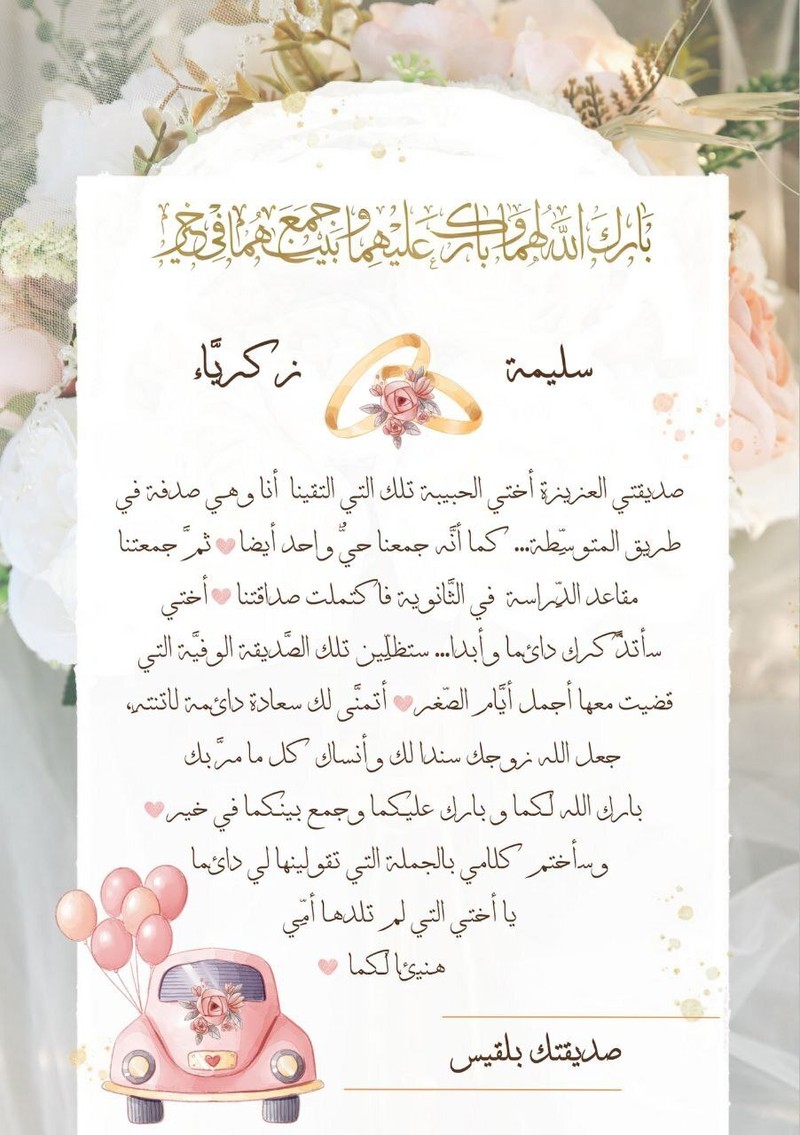 بَارَكَ اللَّهُ لَهُمَا وَبَارَكَ عَلَيْهِمَا وَجَمَعَ بَيْنَهُمَا فِي خَيْرٍ
سليمة زكريَّاء
صديقتي العزيزة أختي الحبيبة تلك التي التقينا أنا وهي صدفة في
طريق المتوسِّطة... كما أنَّه جمعنا حيٌّ واحد أيضا🩷ثمَّ جمعتنا
مقاعد الدِّراسة في الثَّانوية فاكتملت صداقتنا🩷أختي
سأتذَّكرك دائما وأبدا... ستظلِّين تلك الصَّديقة الوفيَّة التي
قضيت معها أجمل أيَّام الصّغر🩷أتمنَّى لك سعادة دائمة لاتنتهي،
جعل الله زوجك سندا لك وأنساك كل ما مرَّ بك
بارك الله لكما و بارك عليكما وجمع بينكما في خير🩷
وسأختم كلامي بالجملة التي تقولينها لي دائما
يا أختي التي لم تلدها أمِّي
هنيئا لكما 🩷
صديقتك بلقيس